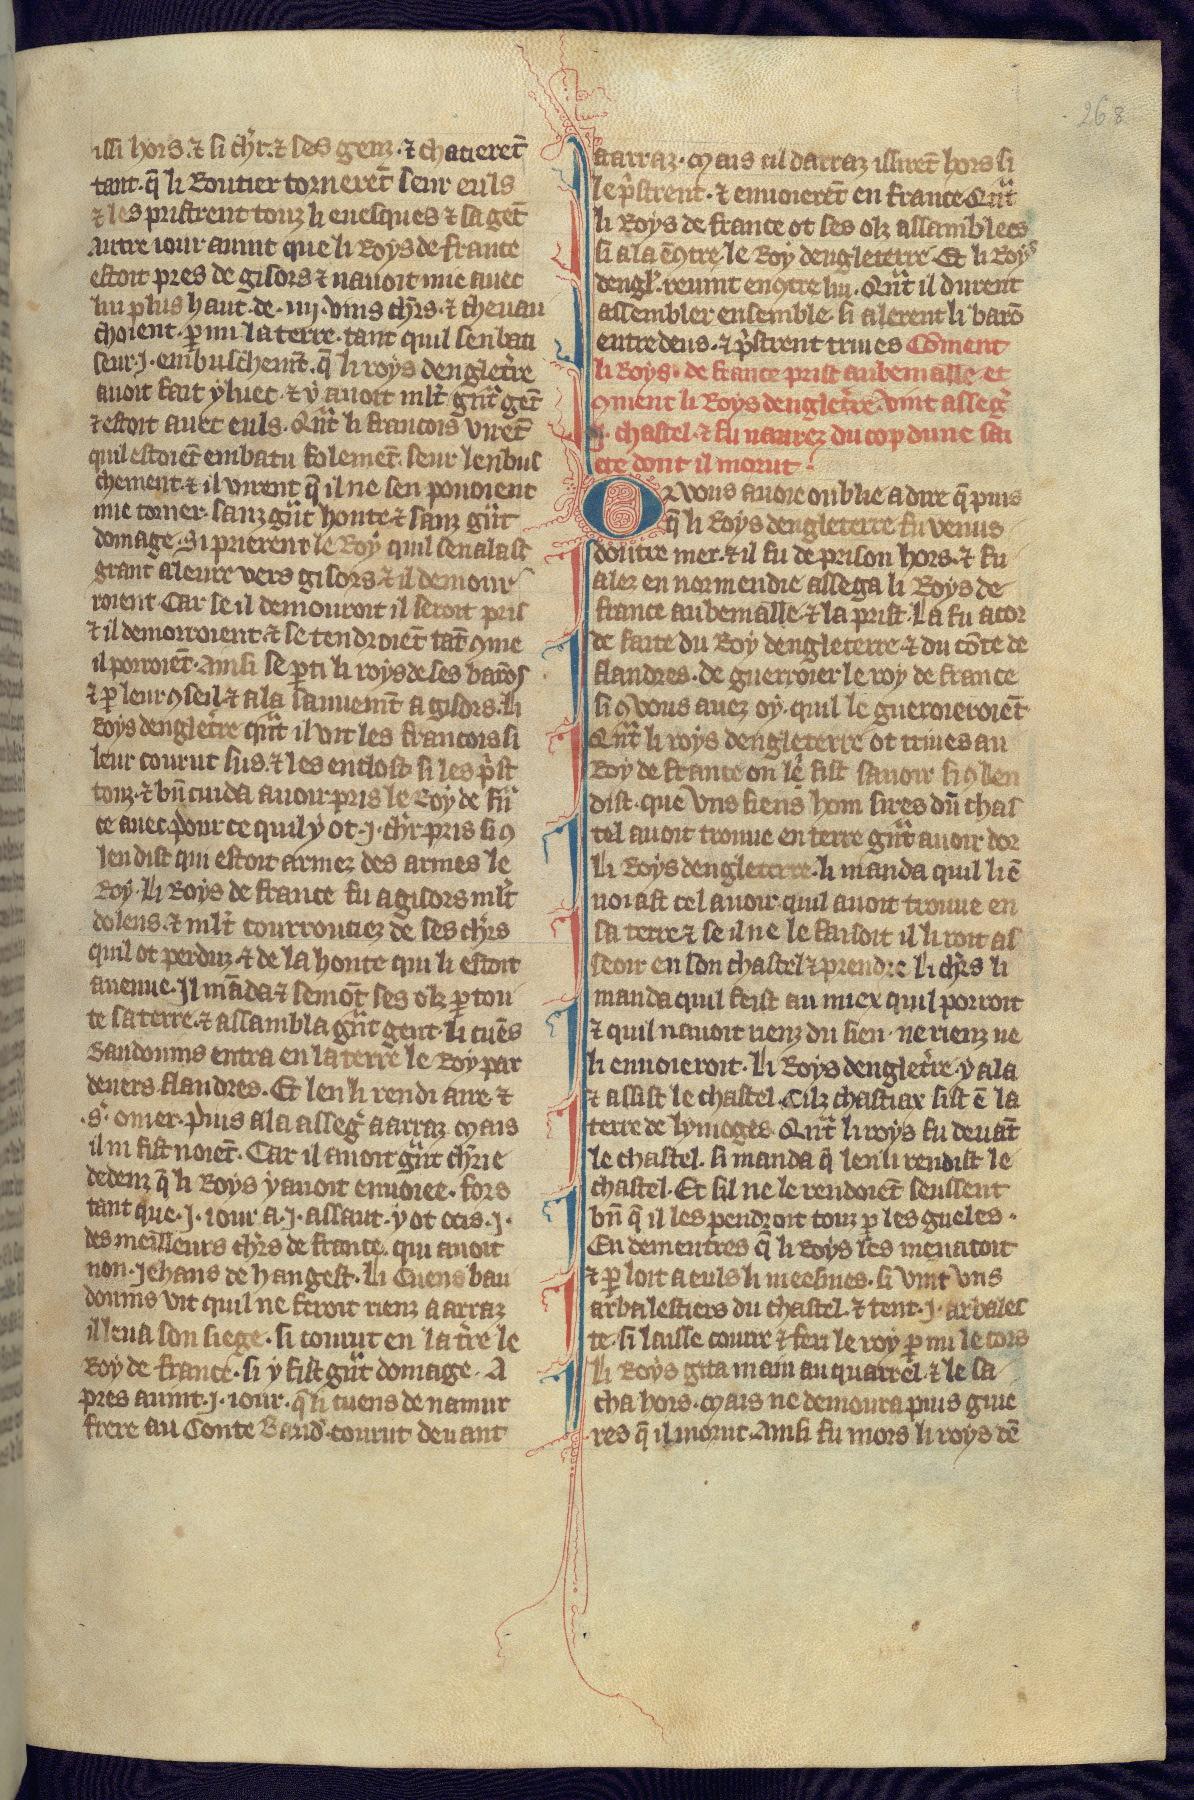 268
issi hors. ⁊ si ch̃r. ⁊ ses genz. ⁊ chacierẽt
tant. q̃ li Routier tornerẽt seur euls
⁊ les pristrent touz li euesques ⁊ sa gẽt
Autre iour auint que li Roys de france
estoit pres de gisors ⁊ nauoit mie auec
lui plus haut. de .iiij. vins ch̃rs. ⁊ cheuau
choient. ꝑ mi la terre. tant quil senbati
seur .j. embuschemẽt. q̃ li roys dengleẽrre
auoit fait yluec. ⁊ y auoit ml̃t gñt gẽt
⁊ estoit auec euls. Qñt li francois virẽt
quil estoiẽt embatu folemẽt. seur lenbus
chement. ⁊ il virent q̃ il ne sen pouoient
mie torner. sanz gñt honte ⁊ sanz gñt
domage. Si prierent le Roy quil senalast
grant aleure vers gisors ⁊ il demour
roient. Car se il demouroit il seroit pris
⁊ il demorroient. ⁊ se tendroiẽt tãt ꝯme
il porroiẽt. Ainsi se ꝑti li roys de ses barõs
⁊ ꝑ leur ꝯseil. ⁊ ala sauuemẽt a gisors. Li
Roys dengletr̃re qñt il vit les francois si
leur courut sus. ⁊ les enclost. si les p̃st
touz. ⁊ bñ cuida auoir pris le Roy de frã
ce auec. Pour ce quil y ot .j. ch̃r. pris si ꝯ
len dist qui estoit armez des armes le
Roy. Li Roys de france fu a gisors ml̃t
dolens. ⁊ ml̃t courrouciez de ses ch̃rs
quil ot perduz. ⁊ de la honte qui li estoit
auenue. Il mãda ⁊ semõt ses olz ꝑ tou
te sa terre. ⁊ assambla gñt gent. li cuẽs
Baudouins entra en la terre le Roy par
deuers flandres. Et len li rendi aire. ⁊
.s̃. omer. Puis ala asseg̃ a arraz. Mais
il ni fist noiẽt. Car il auoit gñt ch̃rie
dedenz q̃ li Roys y auoit enuoiee. fors
tant que .j. iour a .j. assaut. y ot ocis .j.
des meilleurs ch̃rs de france. qui auoit
non. Jehans de hangest. Li Cuens bau
douins vit quil ne feroit rienz a arraz
il leua son siege. si courut en la tr̃re le
Roy de france. si y fist gñt domage. A
pres auint .j. iour. q̃ li cuens de namur
frere au Conte Baud̃. courut deuant
a arraz. Mais cil darraz issirẽt hors si
le p̃strent. ⁊ enuoierẽt en france. Qñt
li Roys de france ot ses olz assamblees
si ala ẽꝯtre. le Roy dengleterre. Et li Roys
dengl̃. reuint enꝯtre lui. Qñt il durent
assembler ensemble. si alerent li barõ
entredeus. ⁊ p̃strent triues Cõment
li Roys. de france prist aubemalle. et
ꝯment li Roys dengletr̃re. vint asseg̃
.j. chastel. ⁊ fu naurez du cop dune sai
ete dont il morut.
Or vous auoie oublie a dire q̃ puis
q̃ li Roys dengleterre fu venus
doutre mer. ⁊ il fu de prison hors. ⁊ fu
alez en normendie assega li Roys de
france aubemalle. ⁊ la prist. La fu acor
de faite du Roy dengleterre. ⁊ du cõte de
flandres. de guerroier le roy de france
si ꝯ vous auez oy. quil le gueroieroiẽt
Qñt li roys dengleterre ot triues au
Roy de france on le fist sauoir si ꝯ len
dist. que vns siens hom sires dũ chas
tel auoit trouue en terre gñt auoir dor
Li Roys dengleterre. li manda quil li ẽ
uoiast cel auoir. quil auoit trouue en
sa terre. ⁊ se il ne le faisoit il li roit as
seoir en son chastel. ⁊ prendre. Li ch̃rs li
manda quil feist au miex quil porroit
⁊ quil nauoit rienz du sien. ne rienz ne
li enuoieroit. Li Roys dengletr̃re. y ala
⁊ assist le chastel. Cilz chastiax sist ẽ la
terre de lymoges. Qñt li roys fu deuãt
le chastel. si manda q̃ len li rendist le
chastel. Et sil ne le rendoiẽt seussent
bñ q̃ il les pendroit touz ꝑ les gueles.
En dementres q̃ li Roys les menacoit
⁊ ꝑloit a euls li meesmes. si vint vns
arbalestiers du chastel. ⁊ tent .j. arbales
te. si laisse courre ⁊ feri le roy ꝑ mi le cors
Li Roys gita main au quarrel. ⁊ le sa
cha hors. Mais ne demoura puis guie
res q̃ il morut. Ainsi fu mors li roys dẽ